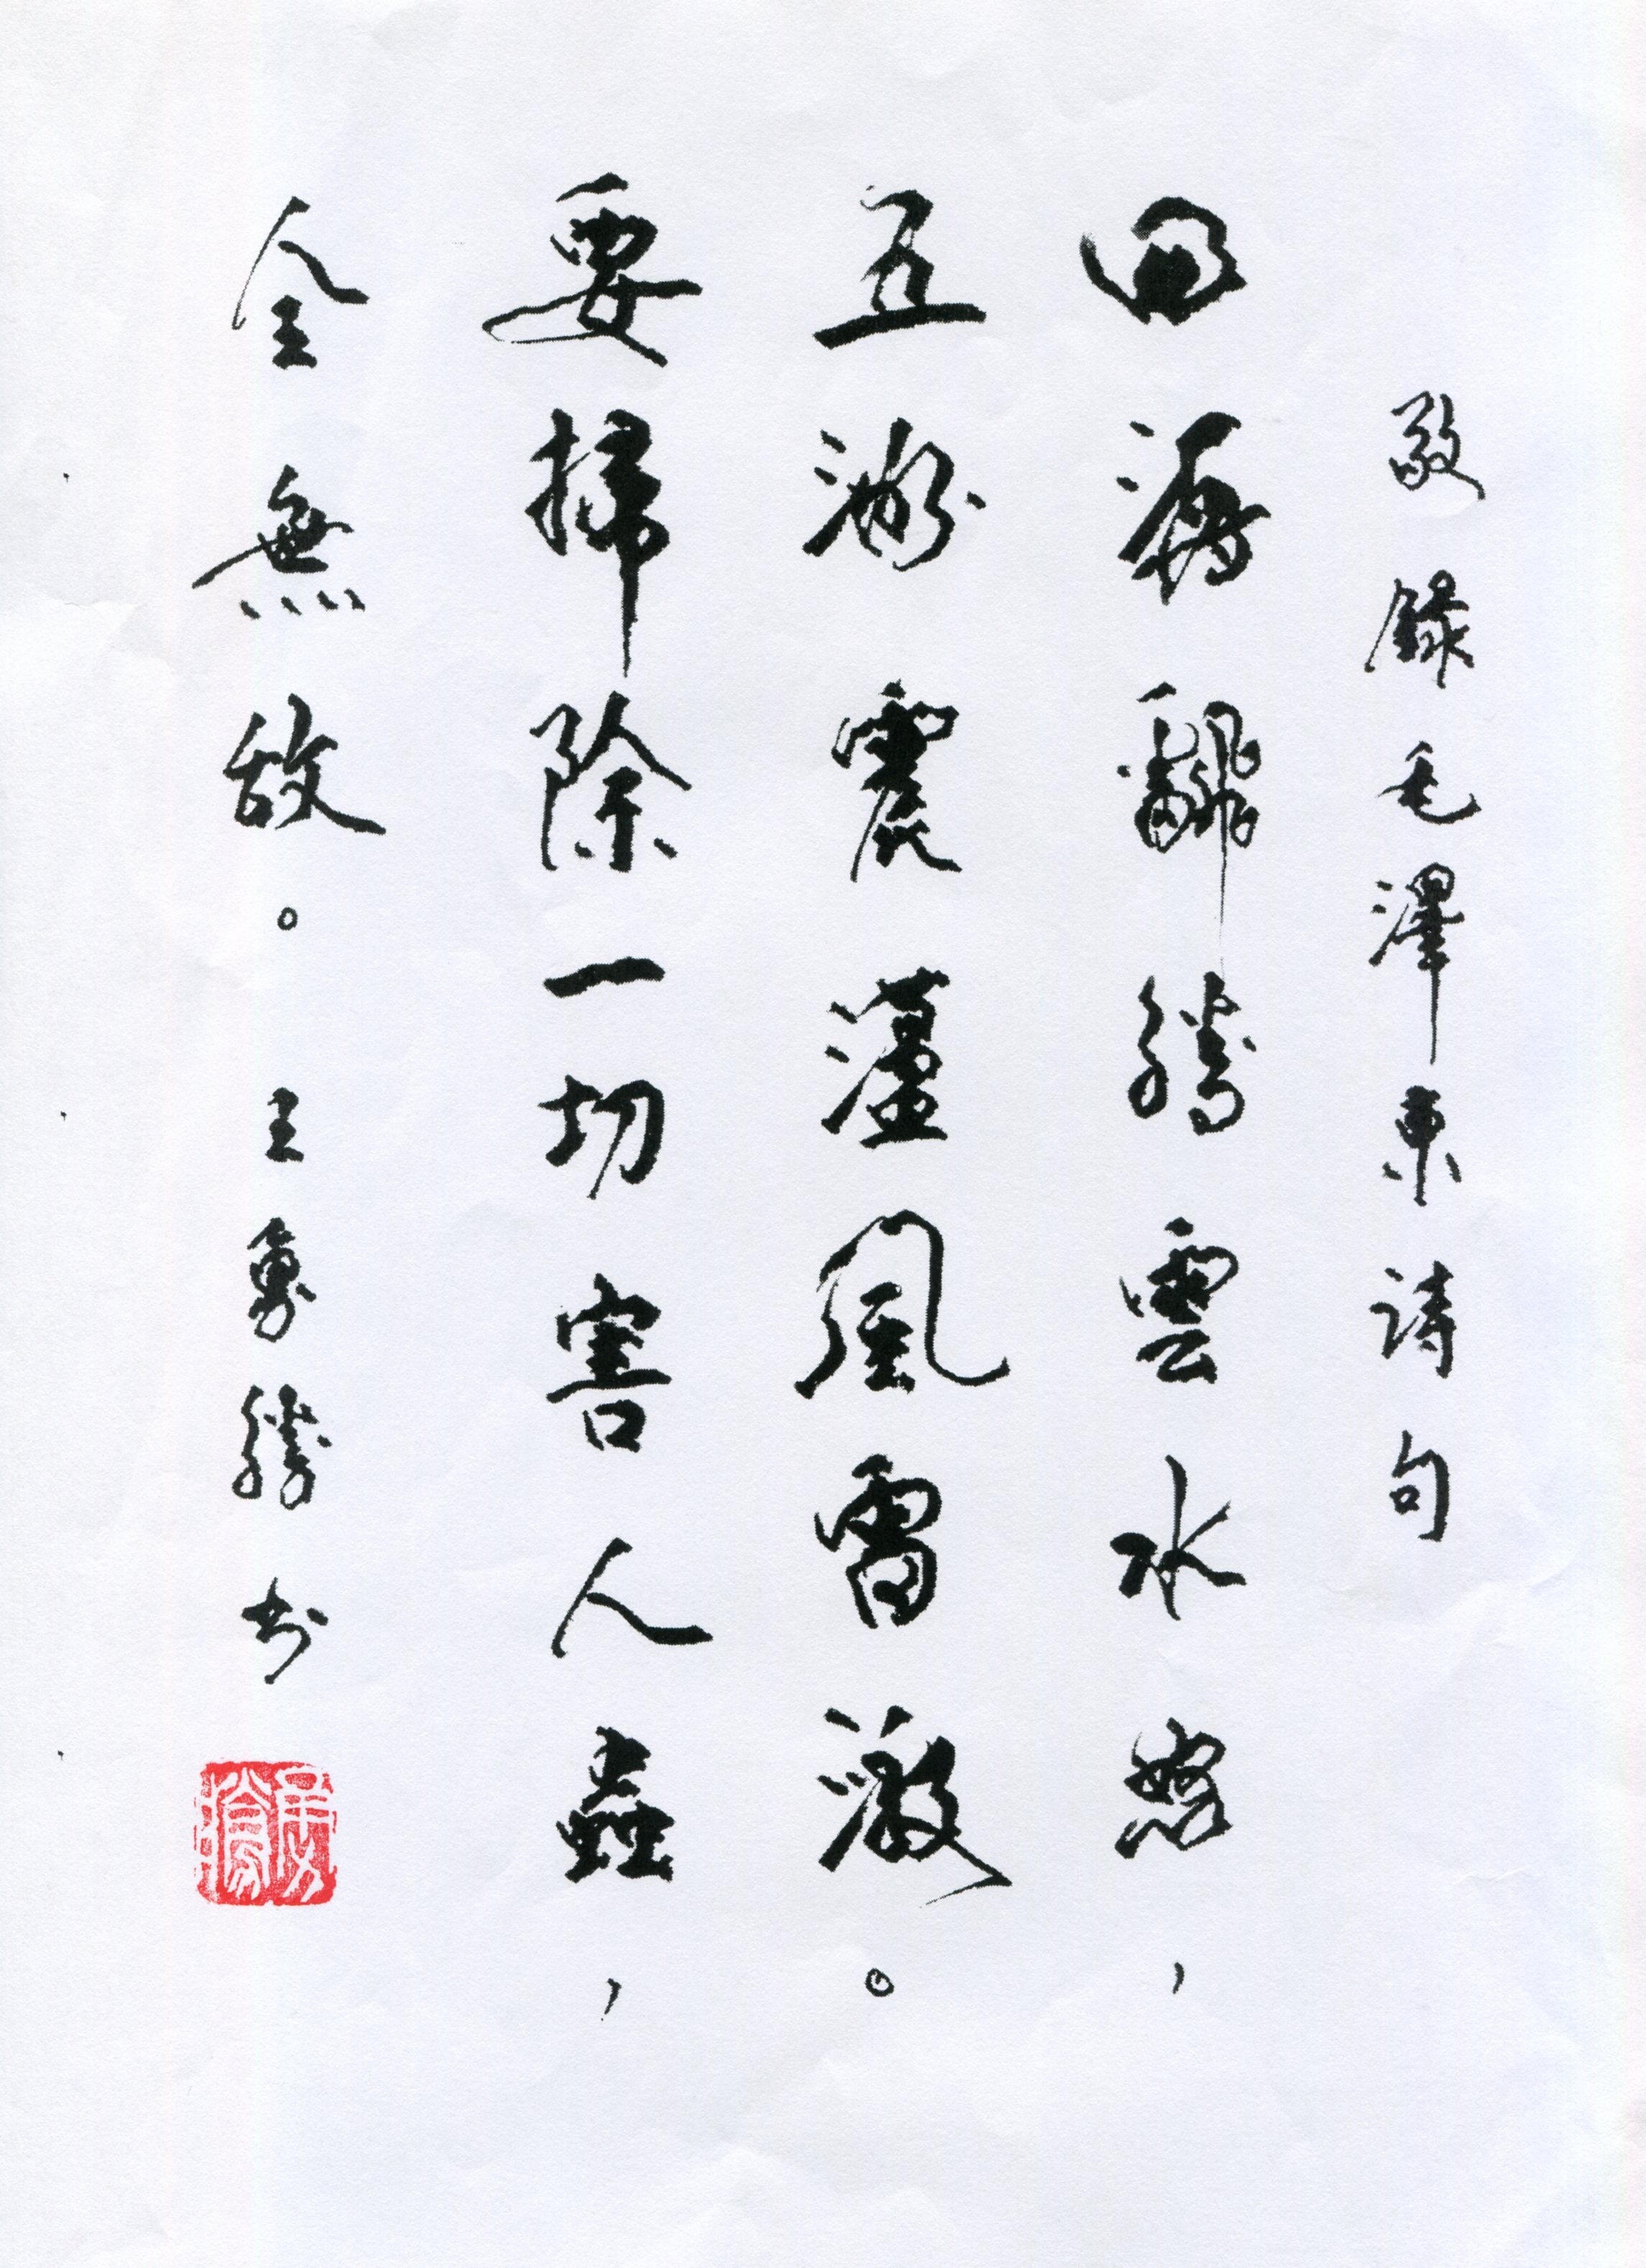 敬錄毛澤東詩句
四海飜騰雲水怒，
五洲震蕩風雷激。
要掃除一切害人蟲，
全無敌。王勇勝书